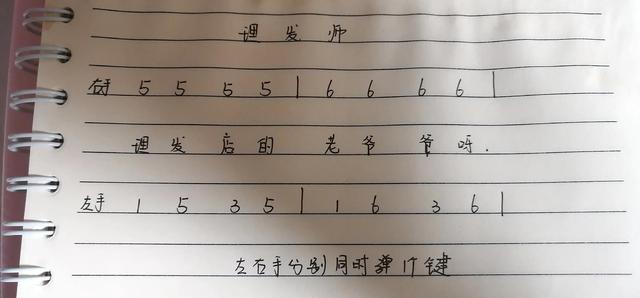 理发师
右手 5 5 5 5 | 6 6 6 6 |
理发店的老爷爷呀.
左手 1 5 3 5 | 1 6 3 6 |
左右手分别同时弹1个键